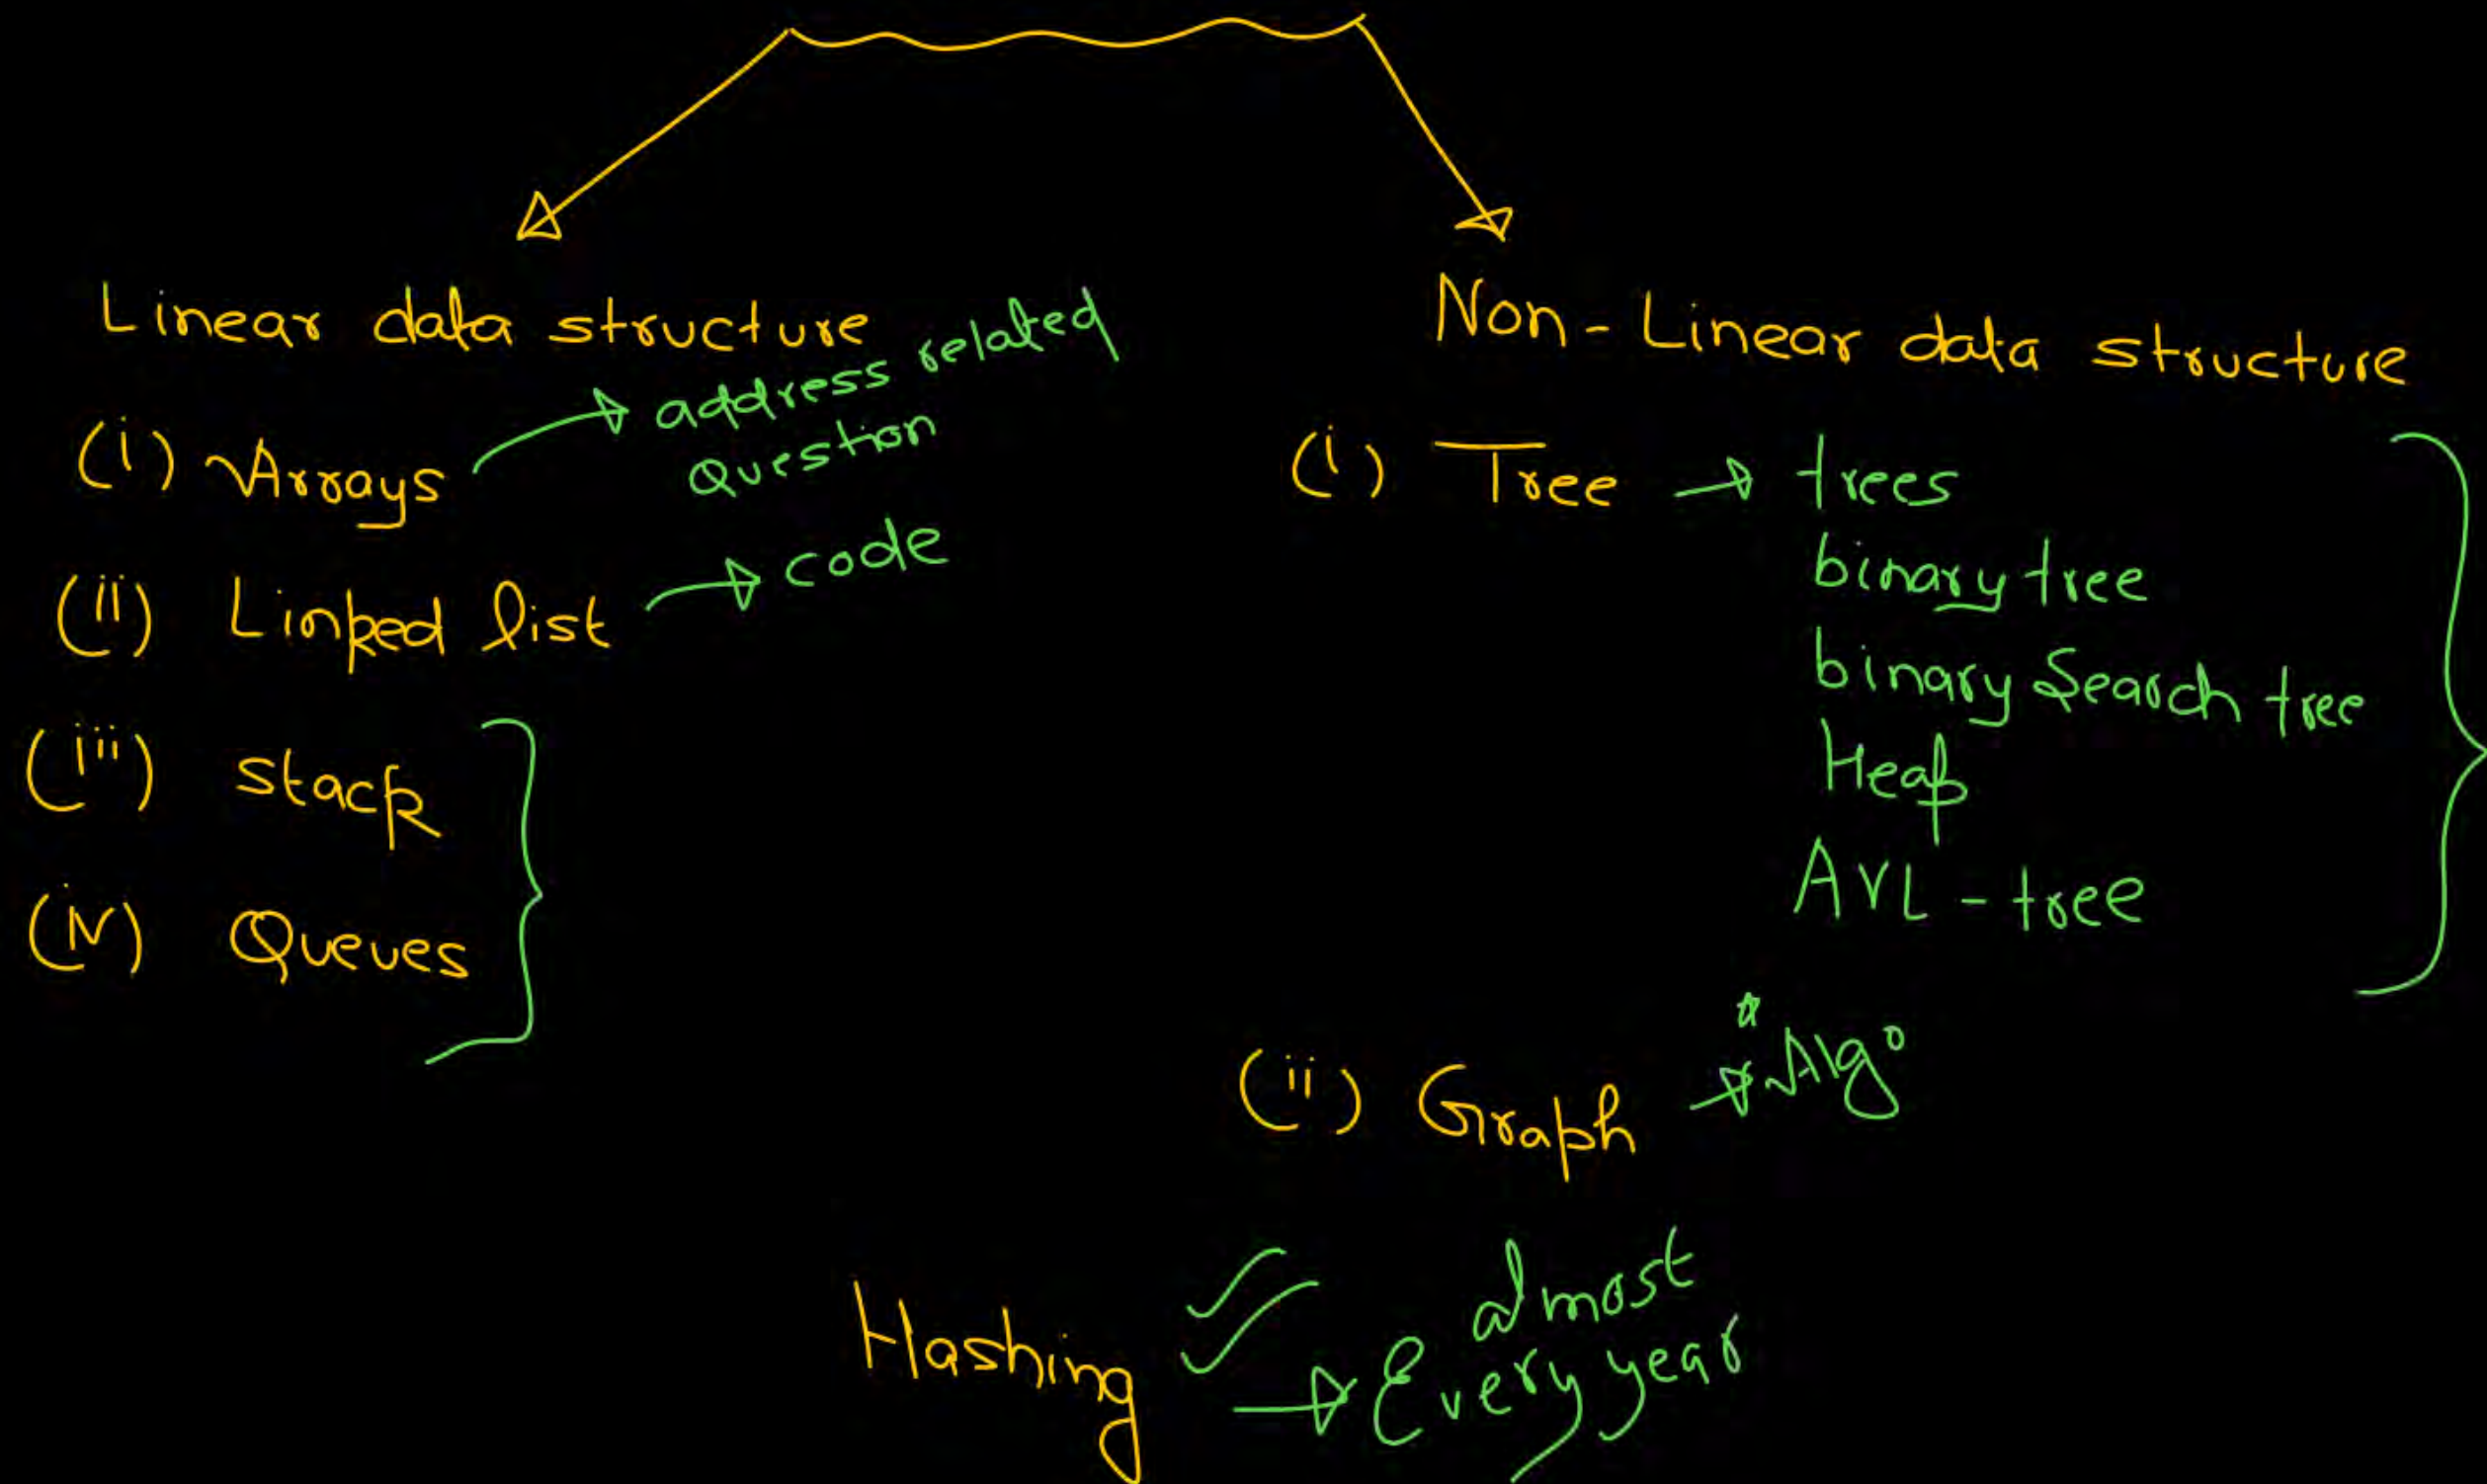 Linear data structure
(i) Arrays → address related
question
(ii) Linked list → code
(iii) stack
(iv) Queues
Non-Linear data structure
(i) Tree → trees
binary tree
binary Search tree
Heap
AVL - tree
(ii) Graph → * Algo
Hashing → almost
Every year